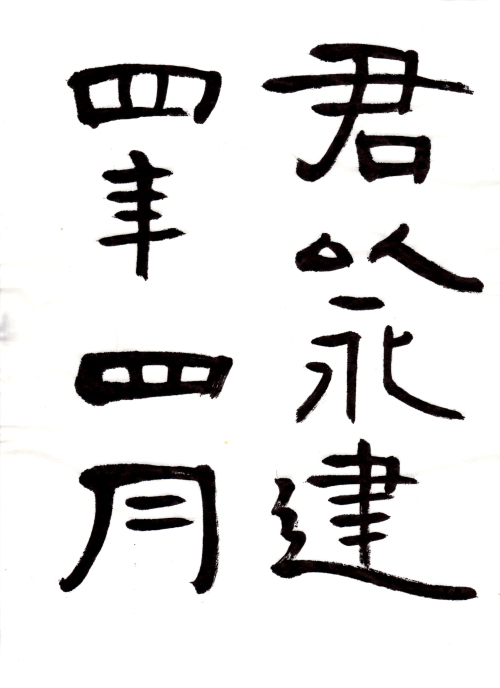 君以永建
四年四月